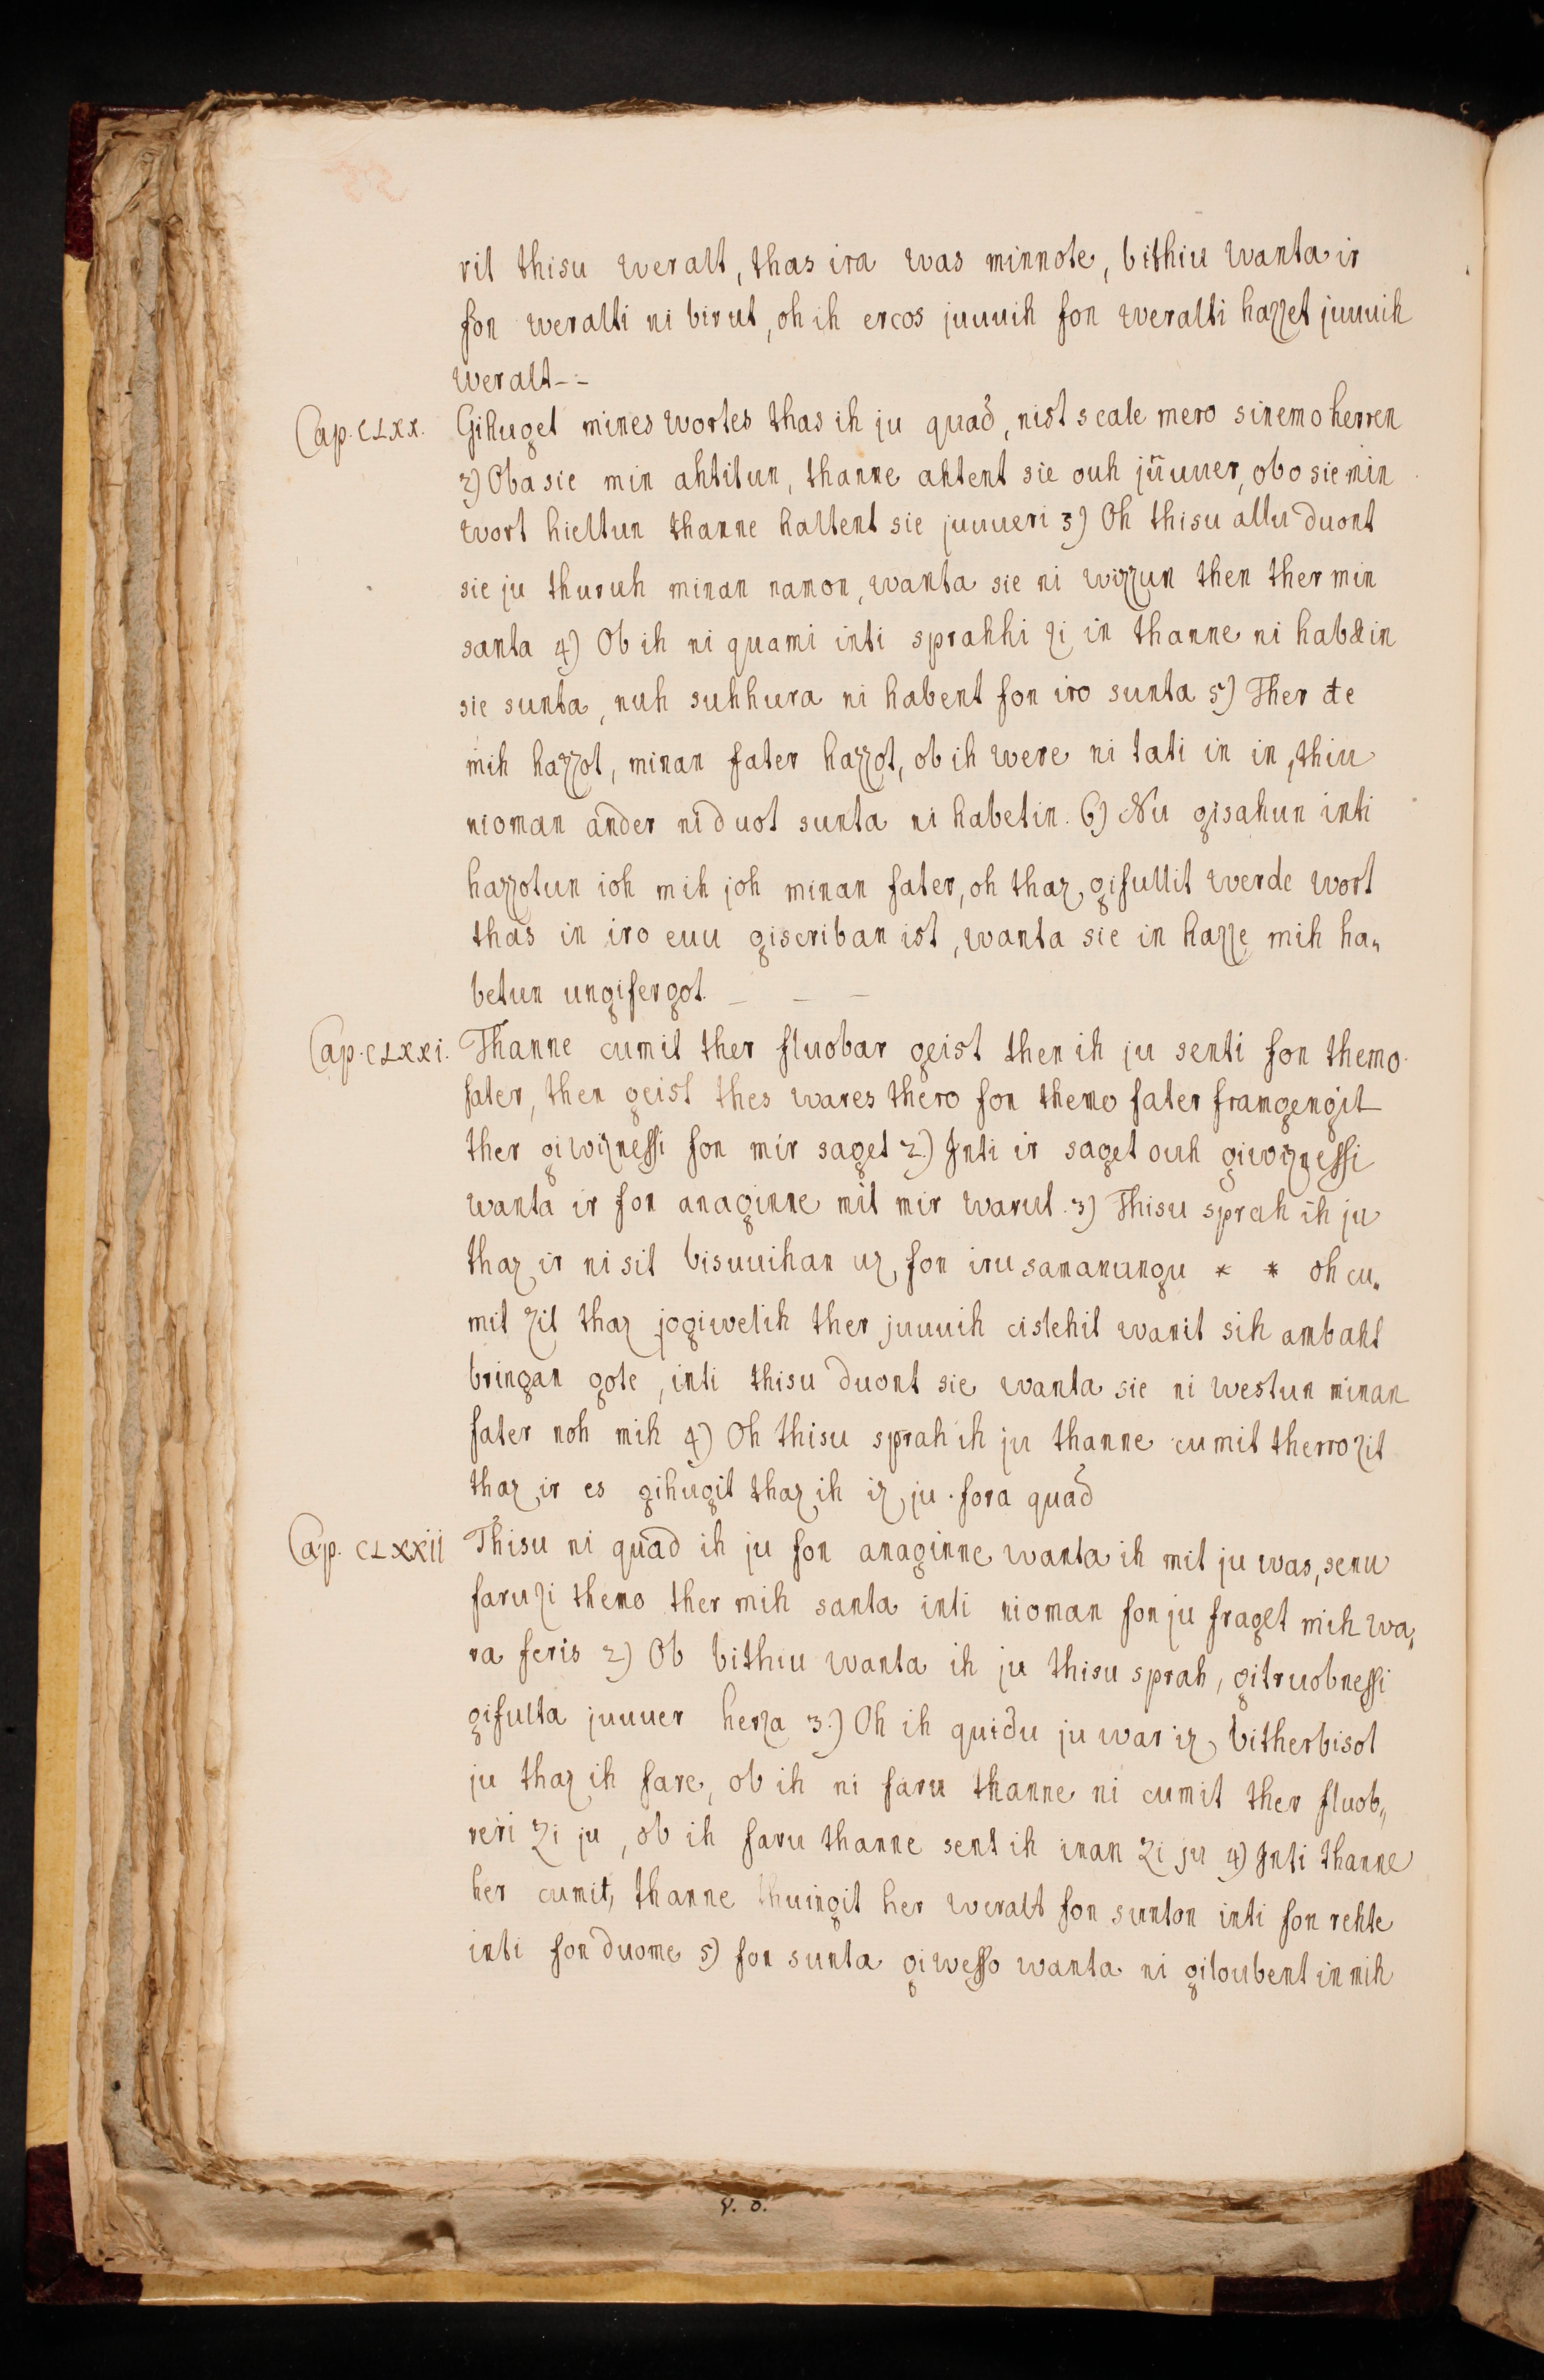 rit thisu weralt, thas ira was minnote, bithiu wanta ir
fon weralti ni birut, oh ih ercos juuuih fon weralti hazzet juuuih
weralt--
Cap. CLXX. Gihuget mines wortes thas ih ju quađ, nist scalc mero sinemo herren
2) Oba sie min ahtitun, thanne ahtent sie ouh jűuuer, obo sie min
wort hieltun thanne haltent sie juuueri 3) Oh thisu allu duont
sie ju thuruh minan namon, wanta sie ni wizzun then ther min
santa 4) Ob ih ni quami inti sprahhi zi in thanne ni habætin
sie sunta, nuh suhhura ni habent fon iro sunta 5) Ther đe
mih hazzot, minan fater hazzot, ob ih were ni tati in in, thiu
nioman ander ni duot sunta ni habetin. 6) Nu gisahun inti
hazzotun ioh mih joh minan fater, oh thaz gifullit werde wort
thas in iro euu giscriban ist, wanta sie in hazze mih ha„
betun ungifergot. – – –
Cap. CLXXI. Thanne cumit ther fluobar geist then ih ju senti fon themo
fater, then geist thes wares thero fon themo fater framgengit
ther giwiznessi fon mir saget 2.) Inti ir saget ouh giwiznessi
wanta ir fon anaginne mit mir warut. 3) Thisu sprah ih ju
thaz ir ni sit bisuuihan uz, fon iru samanungu * * oh cu„
mit zit thaz jogiwelih ther juuuih cislehit wanit sih ambaht
bringan gote, inti thisu duont sie wanta sie ni westun minan
fater noh mih 4) Oh thisu sprah ih ju thanne cumit therro zit
thaz ir es gihugit thaz ih iz ju . fora quađ
Cap. CLXXII Thisu ni quađ ih ju fon anaginne wanta ih mit ju was, senu
faru zi themo ther mih santa inti nioman fon ju fraget mih wa„
ra feris 2) Ob bithiu wanta ih ju thisu sprah, gitruobnessi
gifulta juuuer herza 3.) Oh ih quidu ju war iz, bitherbisot
ju thaz ih fare, ob ih ni faru thanne ni cumit ther fluob„
reri zi ju, ob ih faru thanne sent ih inan zi ju 4) Inti thanne
her cumit, thanne thuingit her weralt fon sunton inti fon rehte
inti fon duome 5) fon sunta giwesso wanta ni giloubent in mih
V. D.